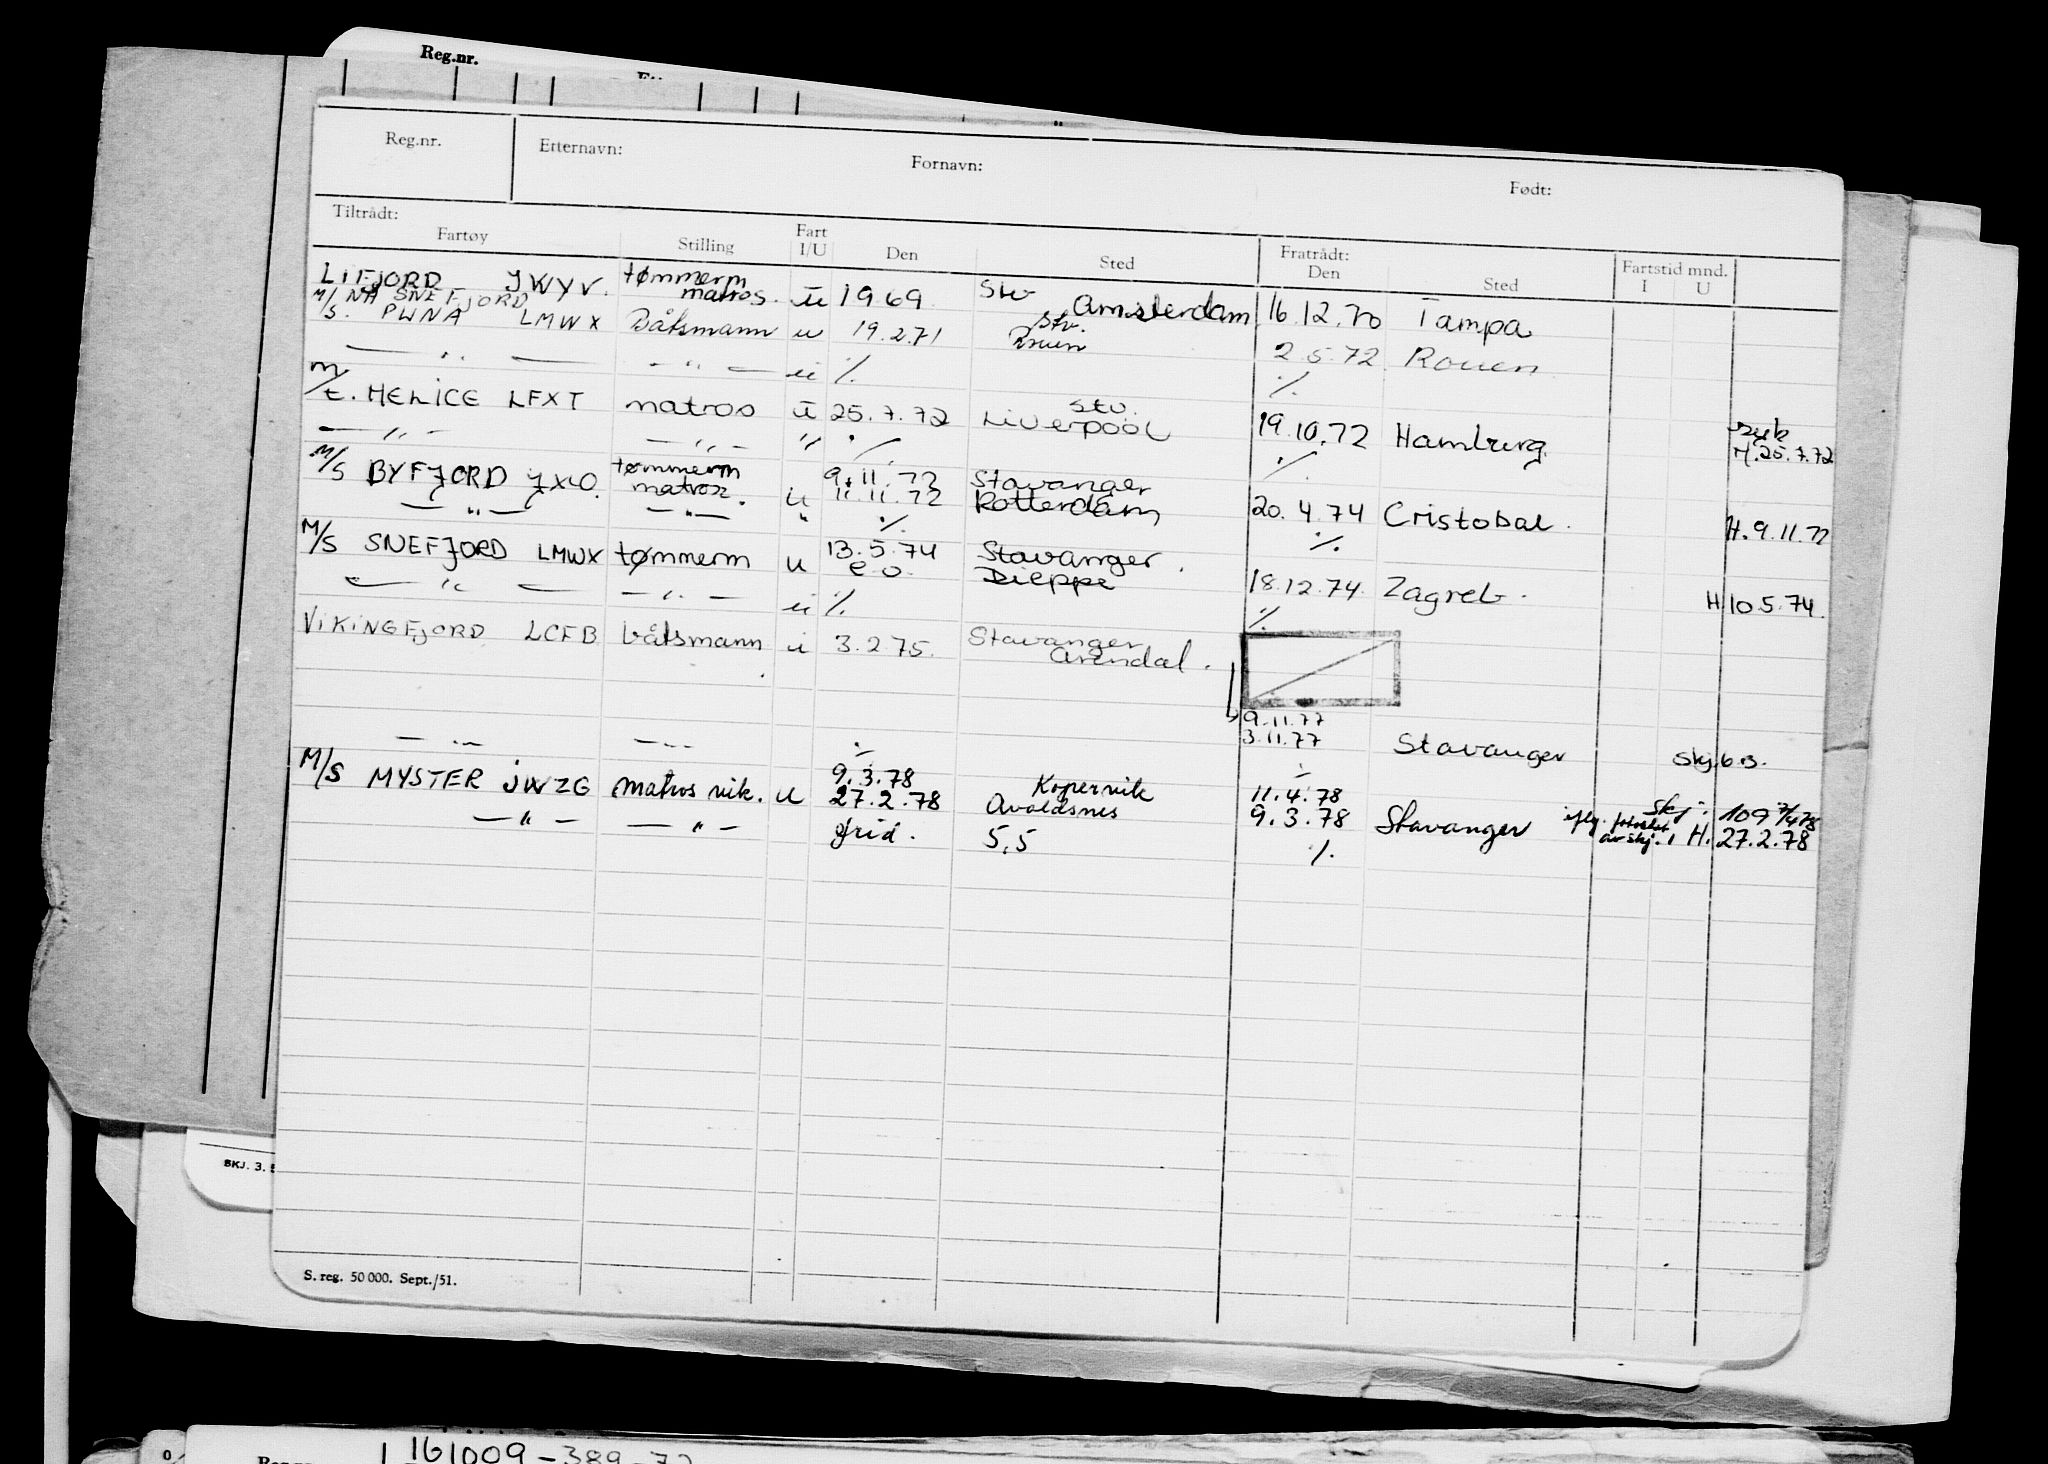 Reg.nr.
Reg.nr. Etternavn: Fornavn: Født:
Tiltrådt: Fratrådt:
Fartøy Stilling Fart I/U Den Sted Den Sted Fartstid mnd. I U
LiFJORD JWYV. tømmerm
matros. u 1969. Stv Amsterdam 16.12.70 Tampa
M/S NÅ SNEFJORD
PWNA LMWX Båtsmann u 19.2.71 Stv. Rouen 2.5.72 Rouen
— " — — " — u %. %
M/T. HELICE LFXT matros u 25.7.72 Stv. Liverpool 19.10.72 Hamburg. syk H.25.7.72
— " — — " — " % %
M/S BYFJORD JXLO. tømmerm 9.11.72 Stavanger
matros. u 11.11.72 Rotterdam 20.4.74 Cristobal. H.9.11.72
— " — — " — " %. %.
M/S SNEFJORD LMWX tømmerm u 13.5.74 Stavanger.
e.o. Dieppe 18.12.74. Zagreb. H 10.5.74.
— " — — " — u %. %.
ViKiNGFJORD LCFB båtsmann u 3.2.75. Stavanger
Arendal.
9.11.77
3.11.77 Stavanger Skj.6 B.
— " — — " — % %
M/S MYSTER JWZG Matros vik. u 9.3.78 Kopervik 11.4.78 Skj. 109 7/4 78
27.2.78 Avaldsnes 9.3.78 Stavanger iflg. fotostat av skj. 1 H. 27.2.78
— " — — " — frid. 5,5 %.
S. reg. 50 000. Sept./51.
SKJ. 3.
161009-389-72